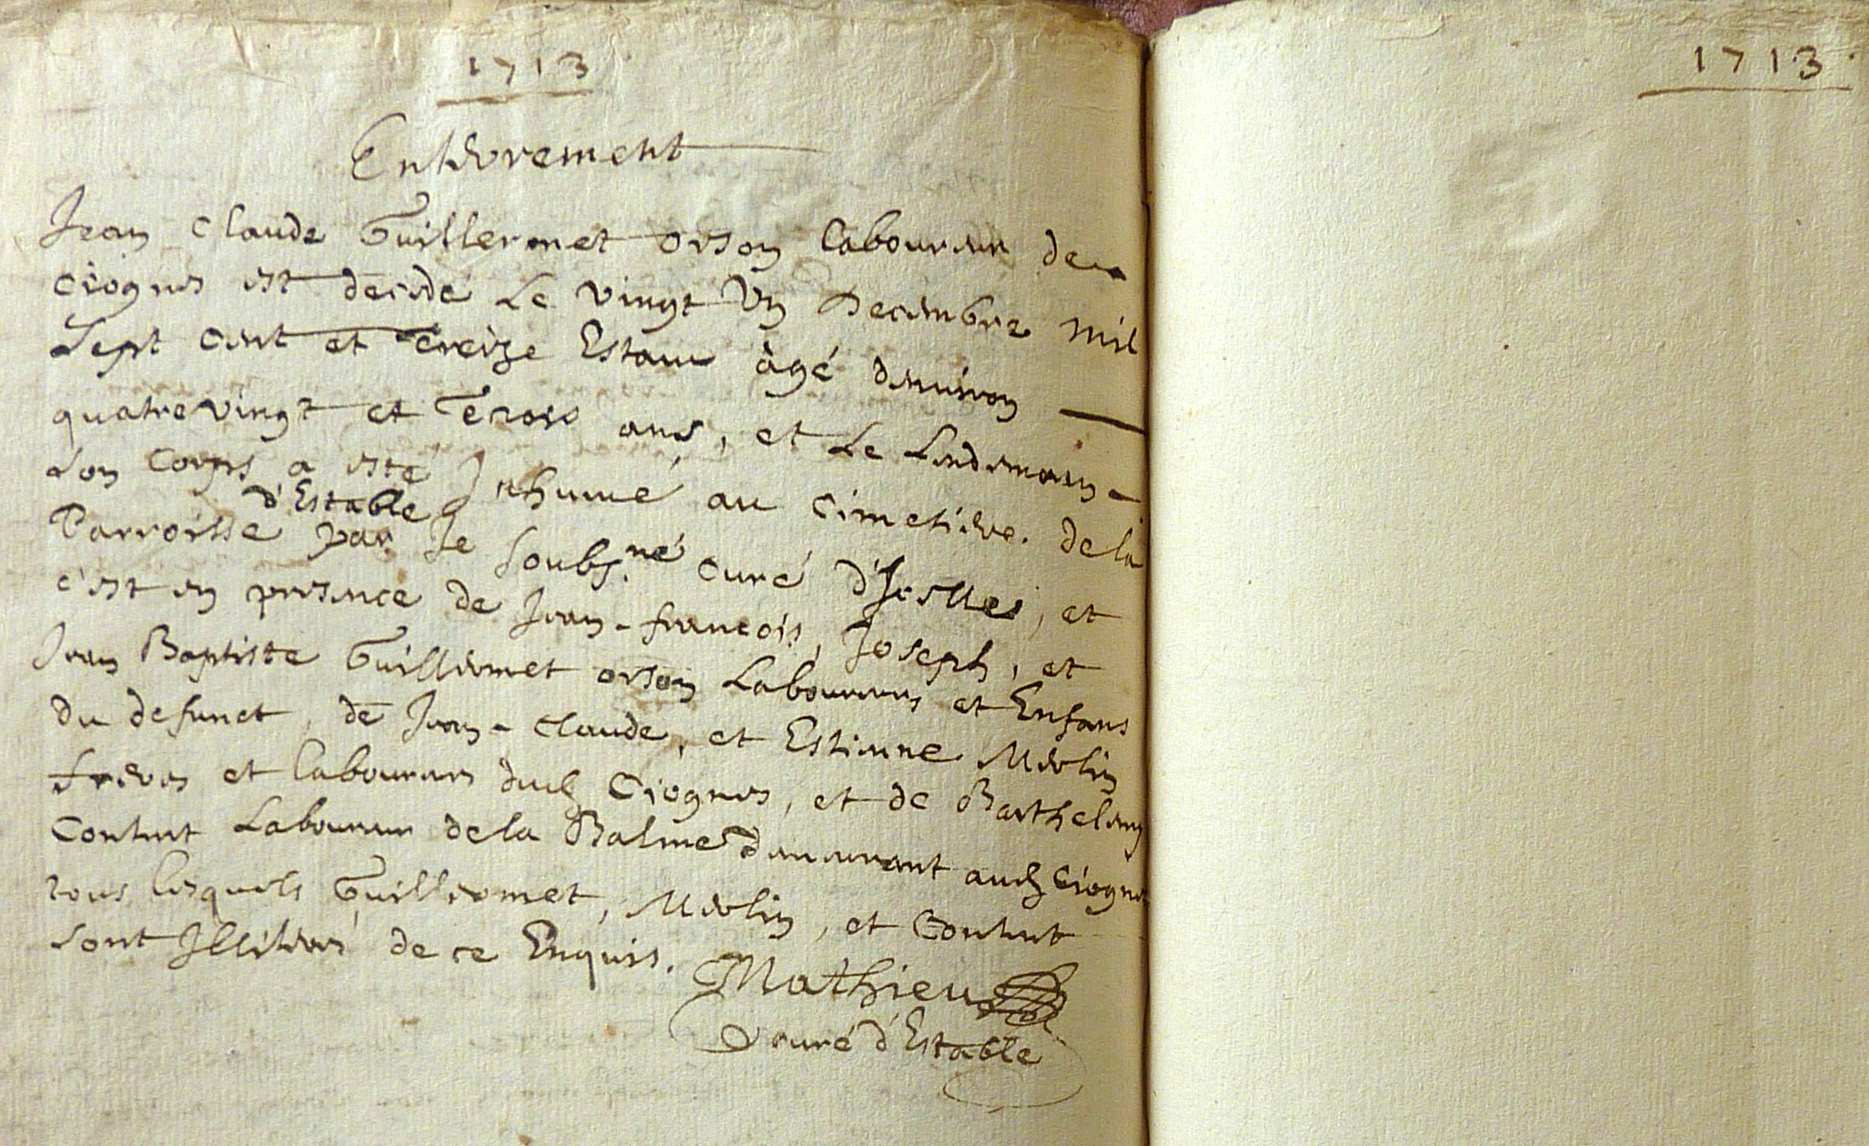 1713
Enterrement
Jean Claude Guillermet orson laboureur de
Ciognes est decede Le vingt Un Decembre mil
Sept cent et treize Estant âgé denuiron
quatrevingt et Trois ans, et Le Lendemain
Son Corps a este Inhumé au Cimetiere de la
d'Estable
Parroisse par Je soubs.né curé d'Iselles, et
c'est en presence de Jean-francois, Joseph, et
Jean Baptiste Guillermet orson Laboureurs et Enfans
du defunct, de Jean-Claude, et Estienne Merlin
freres et laboureurs dud Ciognes, et de Barthelemy
Contut Laboureur de la Balme demeurant aud Ciognes
tous lesquels Guillermet, Merlin, et Contut
sont Illiteres de ce Enquis.
Mathieu
curé d'Estable
1713